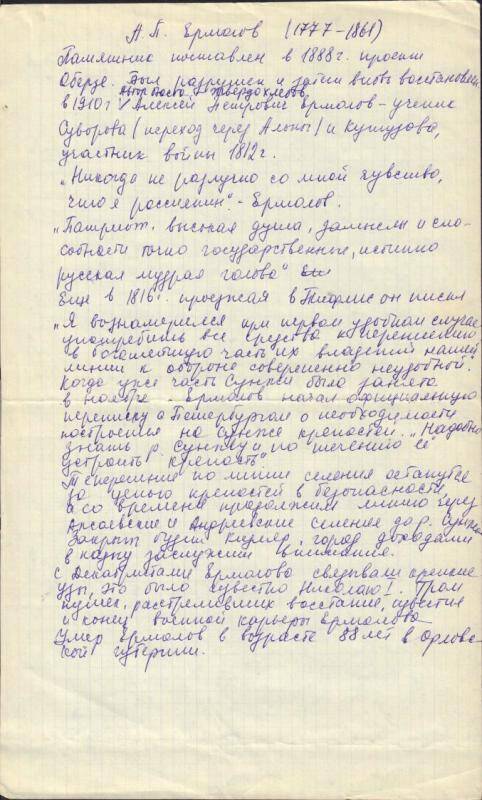 А.П. Ермолов (1777-1861)
Памятник поставлен в 1888г. проект
Оберга. Был разрушен и затем вновь восстановлен
в 1910г Алексей Петрович Ермолов - ученик
Суворова (переход через Альпы) и Кутузова,
участник войны 1812г.
"Никогда не разлучно со мной чувство,
что я россиянин" - Ермолов.
"Патриот. высокая душа, замыслы и спо-
собности точно государственные, истинно
русская мудрая голова"
Еще в 1816г. проезжая в Тифлис он писал
"Я вознамерился при первом удобном случае
употребить все средства к перенесению
в часть их владений нашей
линии к обороне совершенно неудобной.
Когда уже часть Сунжи была занята
в ноябре Ермолов начал официальную
переписку с Петербургом о необходимости
построения на Сунже крепостей. "Надобно
занять р. Сунжу и по течению ее
устроить крепость".
Теперешние по линии селения останутся
за цепью крепостей в безопасности,
а со временем продолжим линию через
Аксаевские и Андреевские селения до р. Сулак
Закрыт будет Кизляр, город доходами
в казну заслужил внимание.
С Декабристами Ермолова связывали крепкие
узы, это было известно Николаю I. Гром
пушек, расстрелявших восстание, известие
и конец военной карьеры Ермолова
Умер Ермолов в возрасте 88 лет в Орловс-
кой губернии.